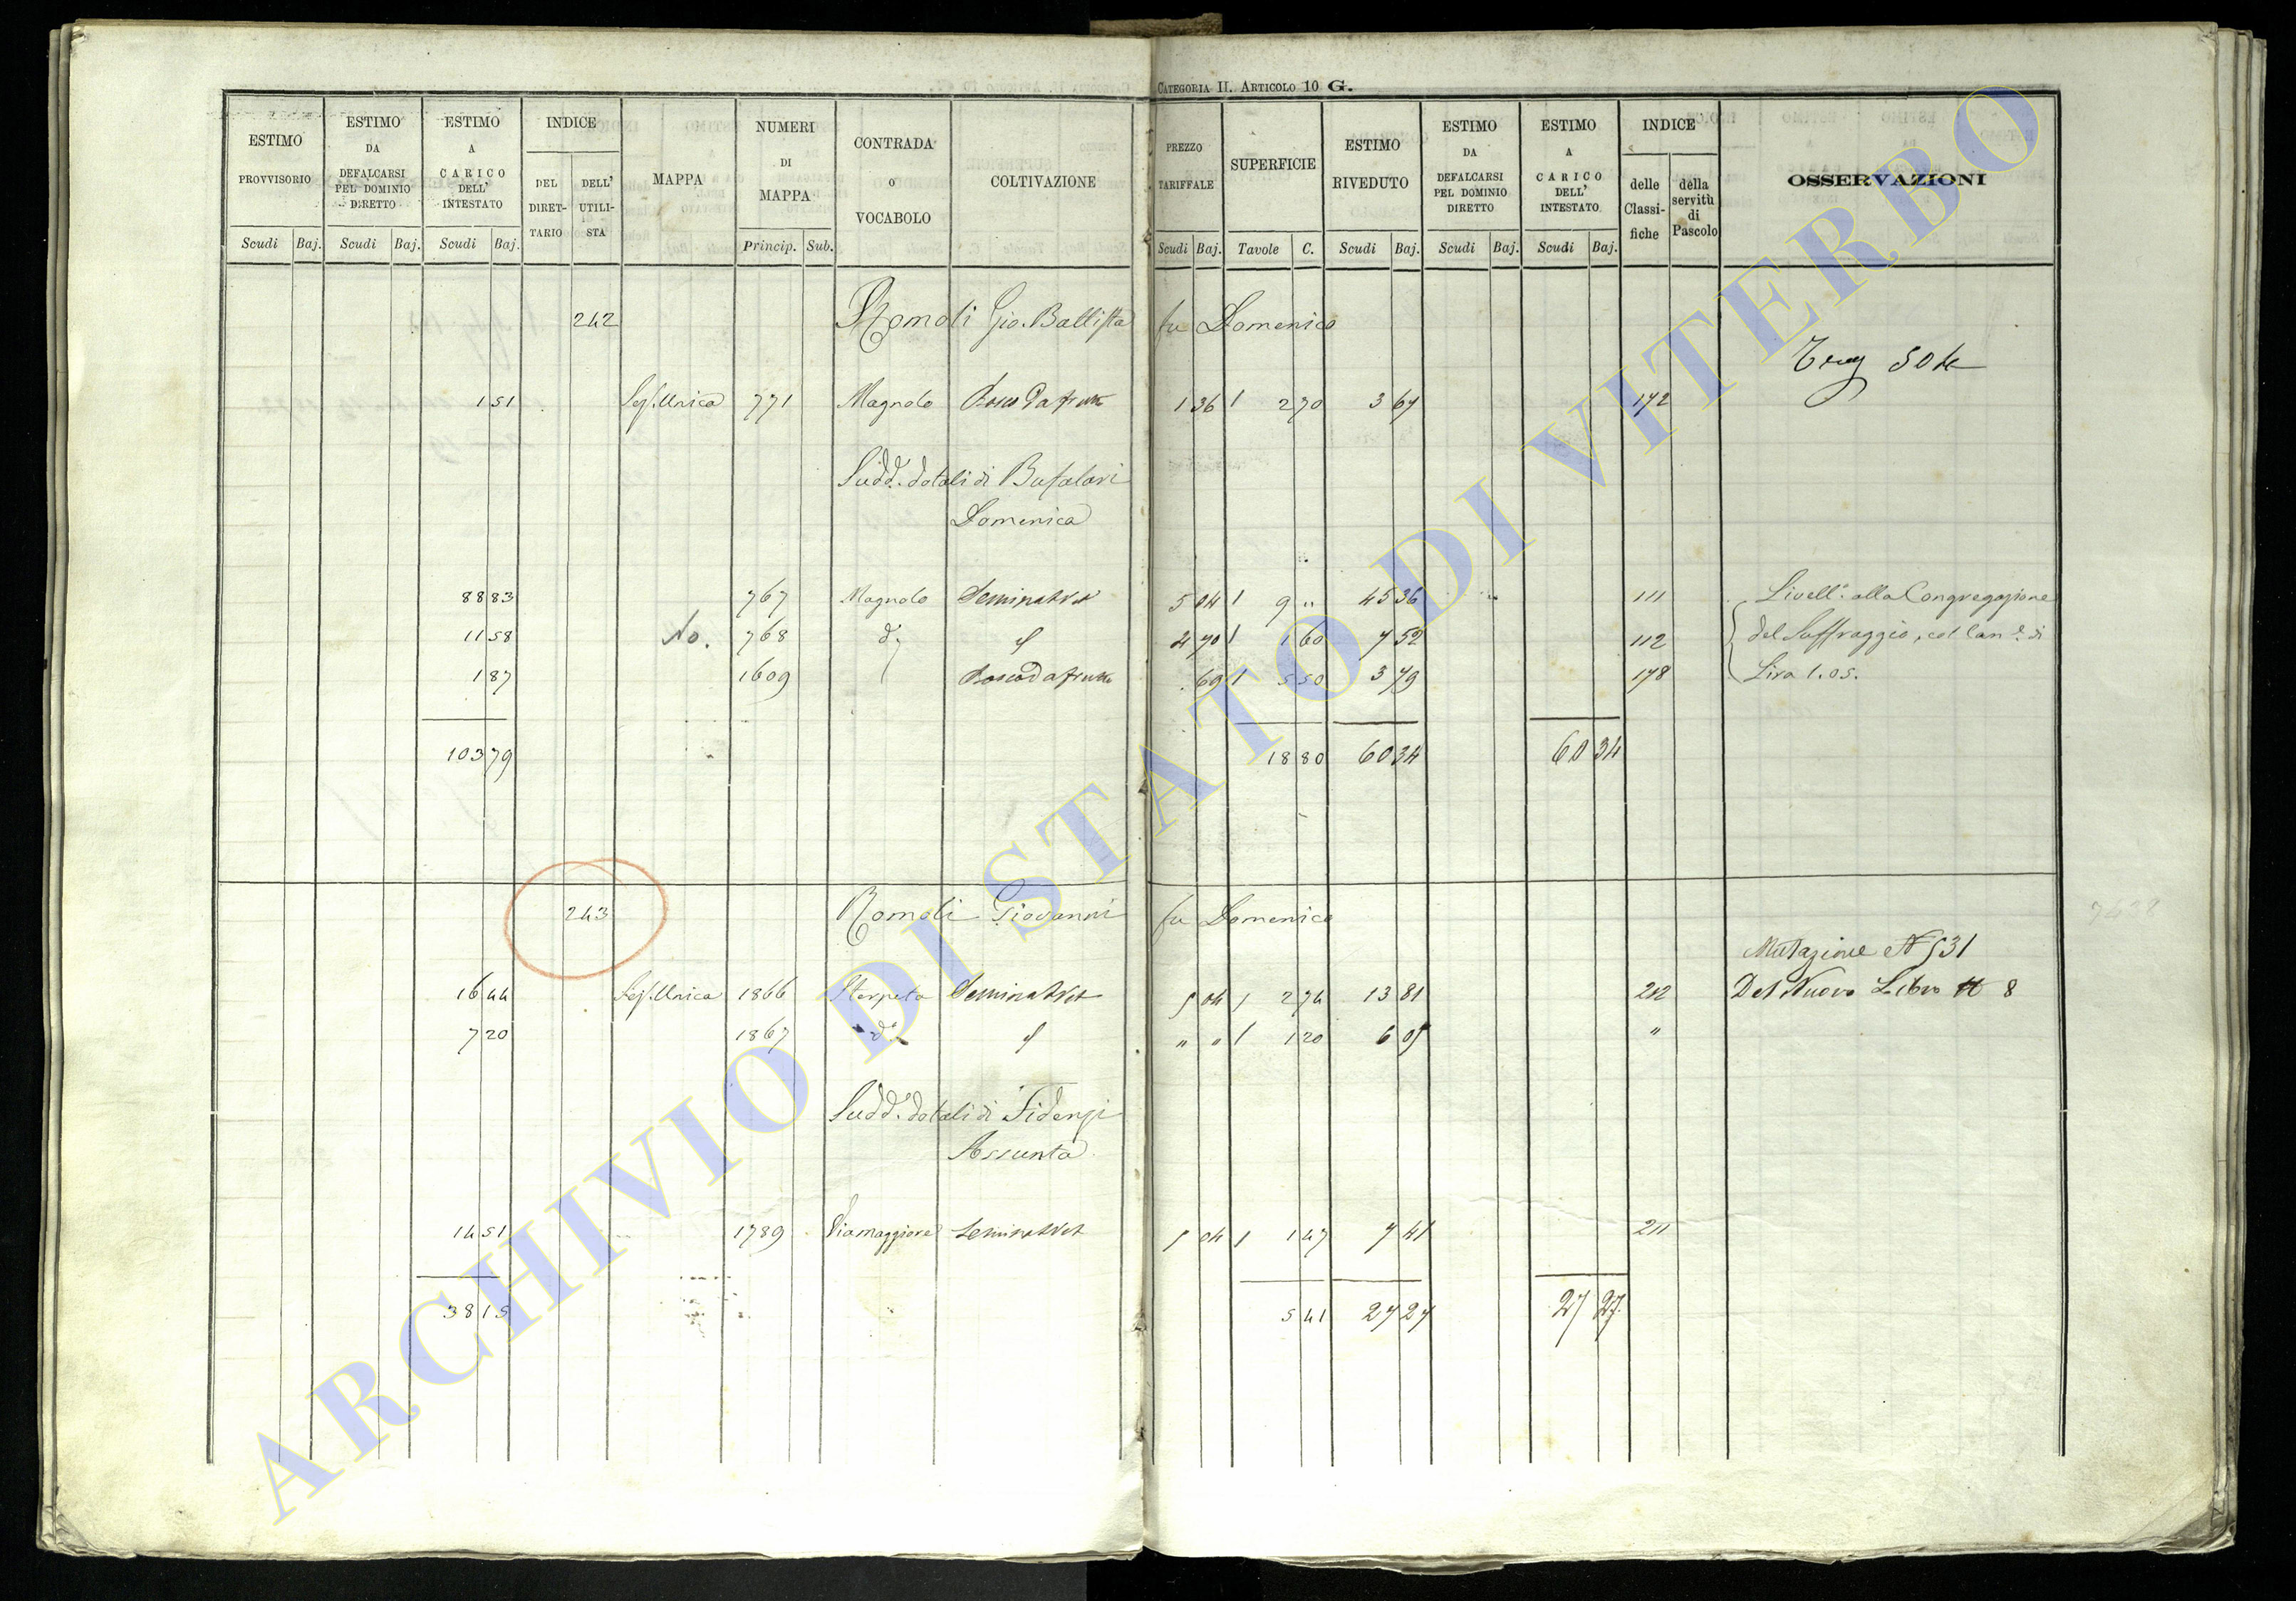 CATEGORIA II. ARTICOLO 10 G.
ESTIMO PROVVISORIO Scudi Baj.
ESTIMO DA DEFALCARSI PEL DOMINIO DIRETTO Scudi Baj.
ESTIMO A CARICO DELL' INTESTATO Scudi Baj.
INDICE DEL DIRET-TARIO DELL' UTILI-STA
MAPPA
NUMERI DI MAPPA Princip. Sub.
CONTRADA o VOCABOLO
COLTIVAZIONE
PREZZO TARIFFALE Scudi Baj.
SUPERFICIE Tavole C.
ESTIMO RIVEDUTO Scudi Baj.
ESTIMO DA DEFALCARSI PEL DOMINIO DIRETTO Scudi Baj.
ESTIMO A CARICO DELL' INTESTATO Scudi Baj.
INDICE delle Classi-fiche della servitù di Pascolo
OSSERVAZIONI
242 Romoli Gio. Battista fu Domenico
1 51 Sez. Unica 771 Magnolo Bosco Da frutto 1 36 1 2 70 3 67 172
Sudd.º dotali di Bufalari
Domenica
88 83 767 Magnolo Seminat Vit 5 04 1 9 " 45 36 111 Livell.º alla Congregazione
11 58 No. 768 dº 4 70 1 1 60 7 52 112 del Suffraggio, col Can.e di
1 87 1609 Bosco Da frutto . 69 1 5 50 3 79 178 Lira 1.05.
103 79 18 80 60 34 60 34
243 Romoli Giovanni fu Domenico
Mutazione N 531
16 44 Sez. Unica 1866 Sterpeto Seminat Vit 5 04 1 2 74 13 81 212 Del Nuovo Libro N 8
7 20 1867 dº " " 1 1 20 6 05 "
Sudd.º dotali di Fidenzi
Assunta
14 51 1789 Viamaggiore Seminat Vit 5 04 1 1 47 7 41 211
38 15 5 41 27 27 27 27
ARCHIVIO DI STATO DI VITERBO